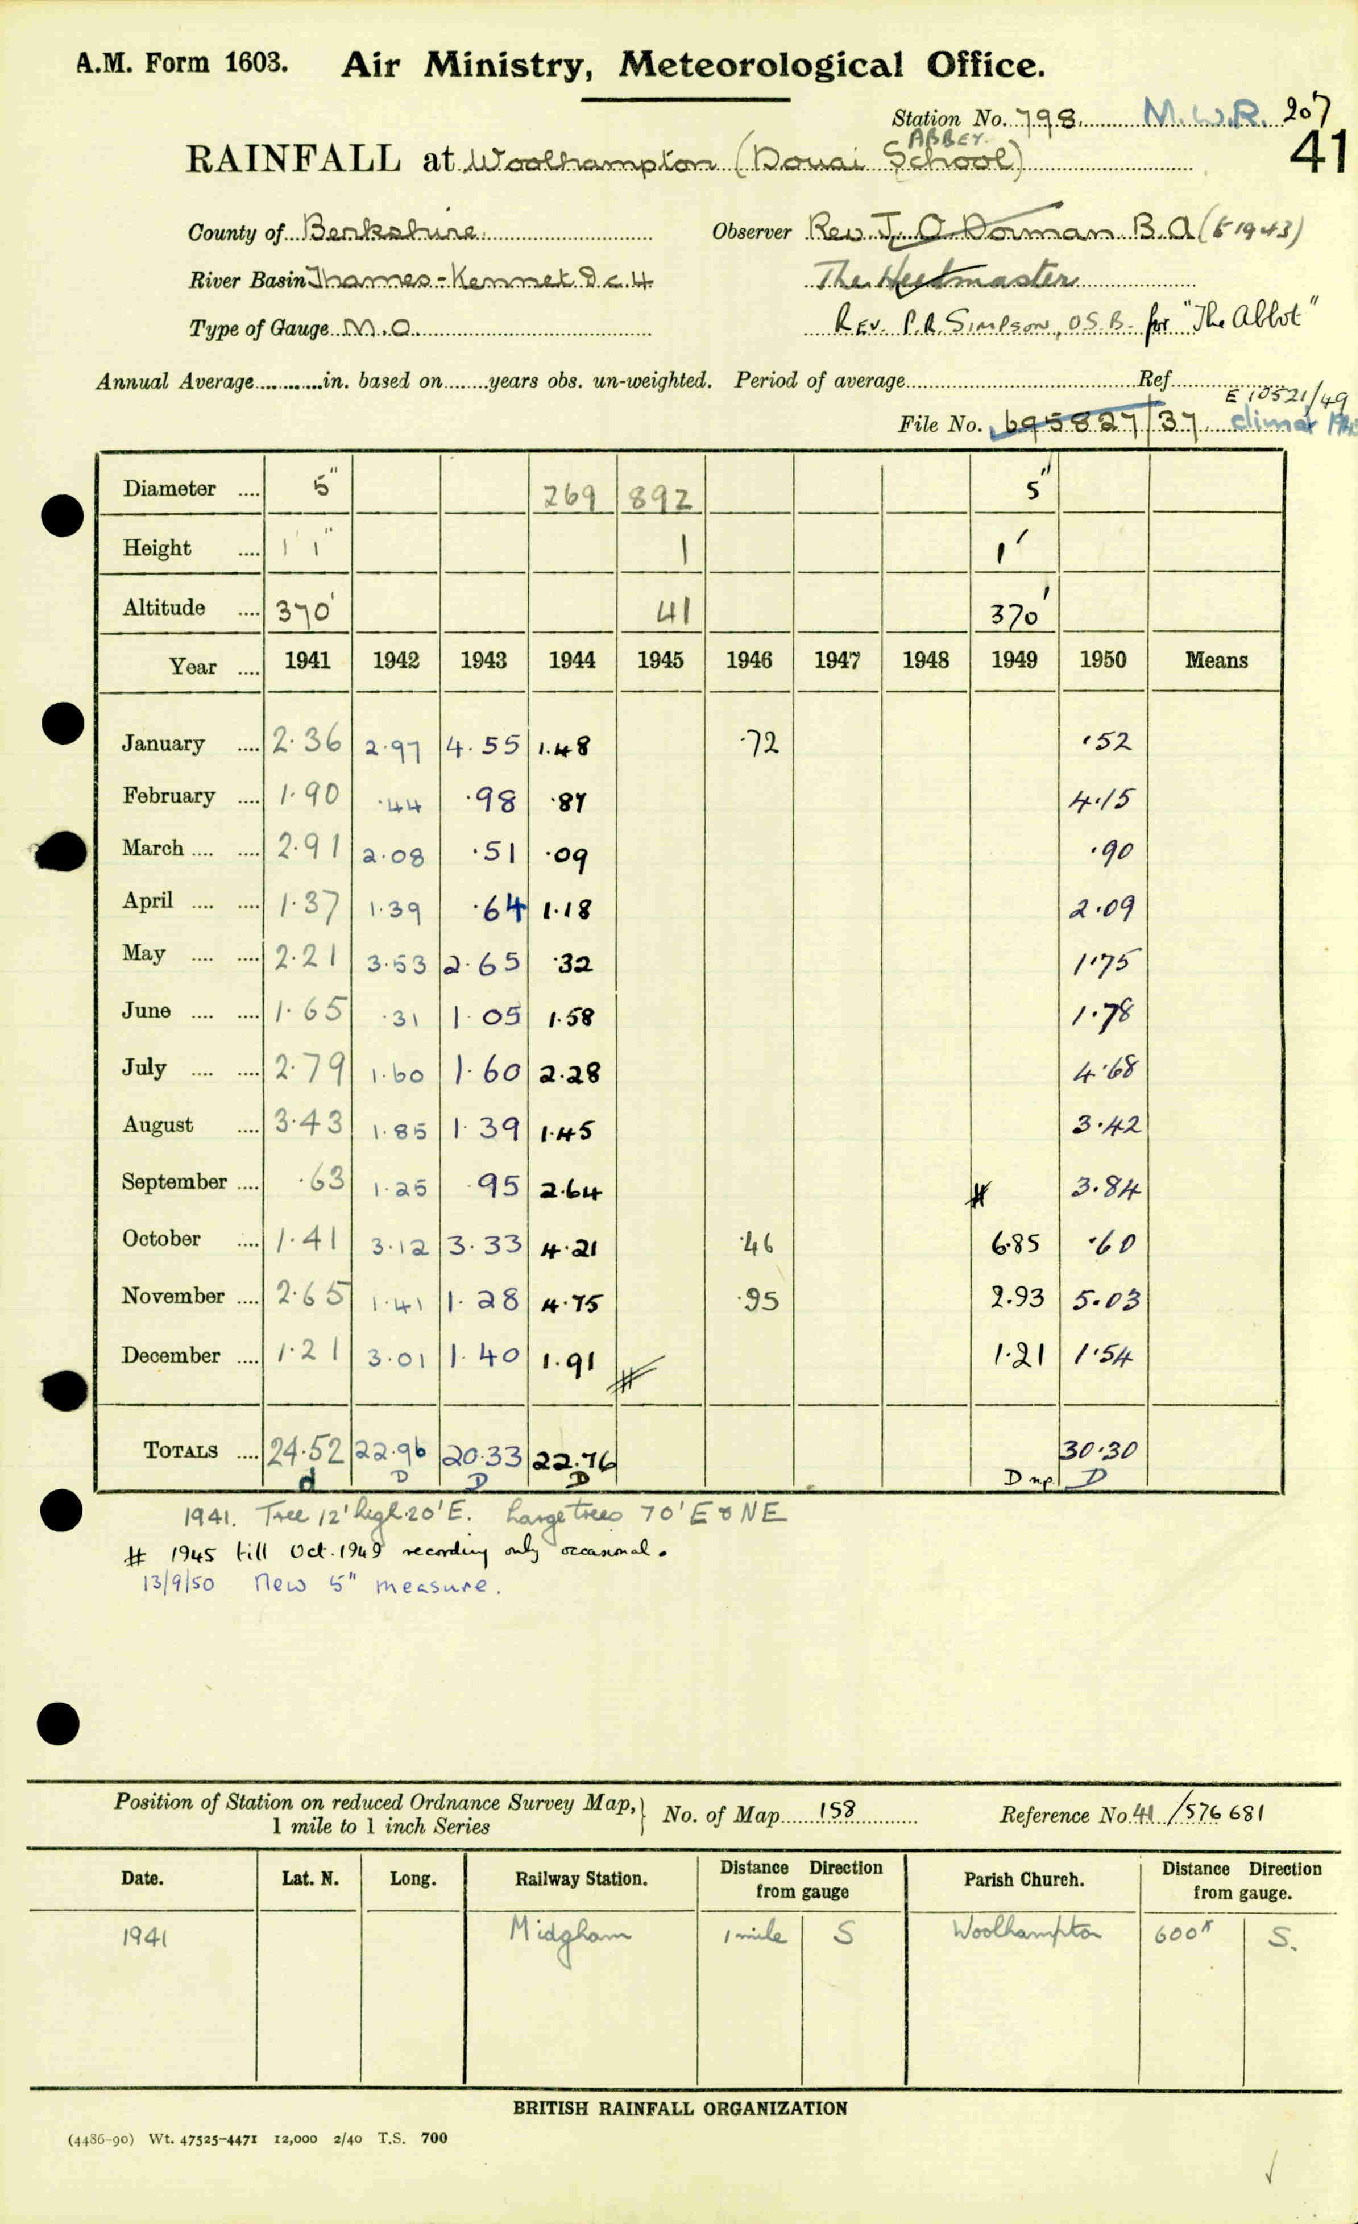 A.M. Form 1603. Air Ministry, Meteorological Office.
Station No. 798. M.W.R. 207
41
ABBEY.
RAINFALL at Woolhampton (Douai School)
County of Berkshire Observer Rev. J. O. Dorman B.A (
River Basin Thames-Kennet D.c.4 The Headmaster
Type of Gauge M.O. Rev. P.R. Simpson, O.S.B. for "The Abbot"
Annual Average............in. based on........years obs. un-weighted. Period of average.................... Ref.......... E 10521/49
File No. 695827/37 climat
Diameter .... 5" 269 892 5"
Height .... 1' 1" 1 1'
Altitude .... 370' 41 370'
Year .... 1941 1942 1943 1944 1945 1946 1947 1948 1949 1950 Means
January .... 2.36 2.97 4.55 1.48 .72 .52
February .... 1.90 .44 .98 .87 4.15
March .... .... 2.91 2.08 .51 .09 .90
April .... .... 1.37 1.39 .64 1.18 2.09
May .... .... 2.21 3.53 2.65 .32 1.75
June .... .... 1.65 .31 1.05 1.58 1.78
July .... .... 2.79 1.60 1.60 2.28 4.68
August .... 3.43 1.85 1.39 1.45 3.42
September .... .63 1.25 .95 2.64 # 3.84
October .... 1.41 3.12 3.33 4.21 .46 6.85 .60
November .... 2.65 1.41 1.28 4.75 .95 2.93 5.03
December .... 1.21 3.01 1.40 1.91 # 1.21 1.54
TOTALS .... 24.52 22.96 20.33 22.76 30.30
d D D D D np. D
1941. Tree 12' high 20' E. Large trees 70' E & NE
# 1945 till Oct. 1949 recording only occasional.
13/9/50 New 5" measure.
Position of Station on reduced Ordnance Survey Map, 1 mile to 1 inch Series } No. of Map 158 Reference No. 41/576681
Date. Lat. N. Long. Railway Station. Distance Direction from gauge Parish Church. Distance Direction from gauge.
1941 Midgham 1 mile S Woolhampton 600x S.
BRITISH RAINFALL ORGANIZATION
(4486-90) Wt. 47525-4471 12,000 2/40 T.S. 700